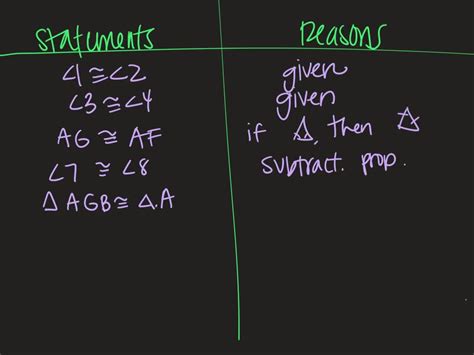 Statements
Reasons
∠1 ≅ ∠2
given
∠3 ≅ ∠4
given
AG ≅ AF
if △, then △
∠7 ≅ ∠8
subtract. prop.
△ AGB ≅ △.A